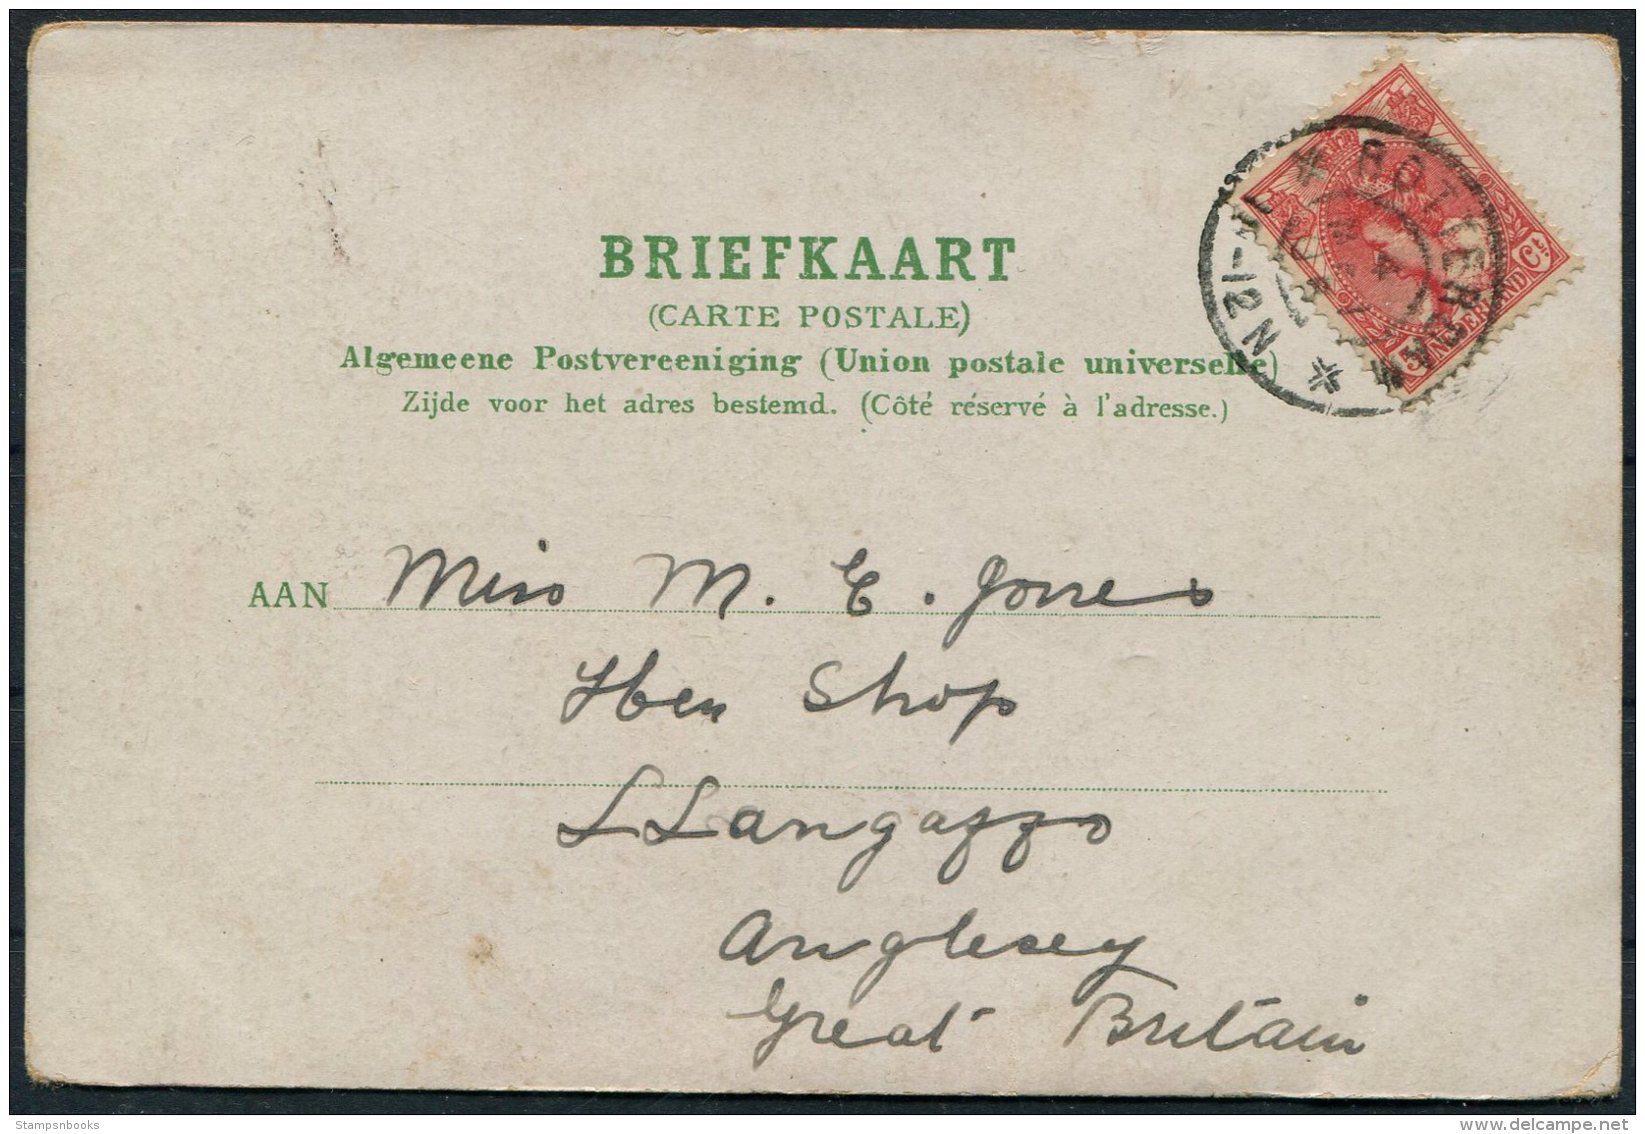 BRIEFKAART
(CARTE POSTALE)
Algemeene Postvereeniging (Union postale universelle)
Zijde voor het adres bestemd. (Côté réservé à l'adresse.)
ROTTERDAM
-12N
5 NEDERLAND Ct
AAN Miss M. E. Jones
Hen Shop
LLangaffo
Anglesey
Great Britain
Stampsnbooks
delcampe.net